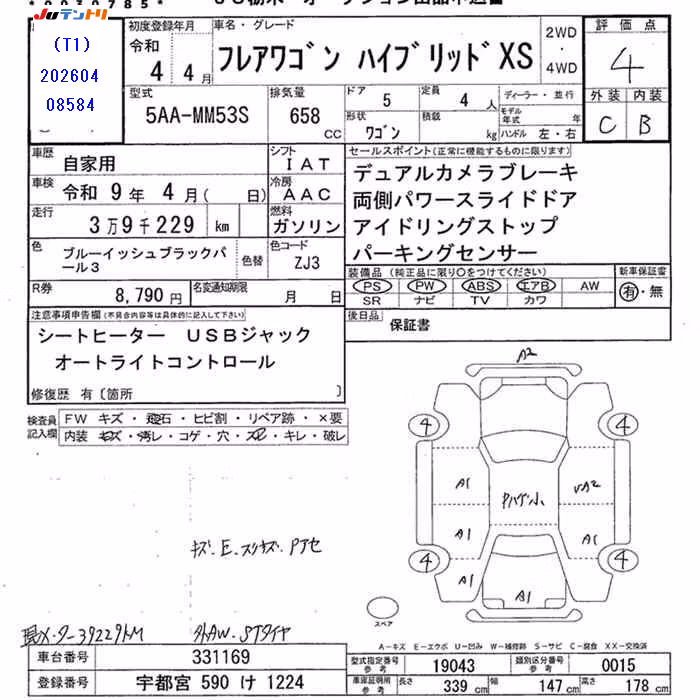 JUテントリ
(T1)
202604
08584
初度登録年月
令和
4 4月
車名・グレード
フレアワゴン ハイブリッド XS
2WD
・
4WD
評価点
4
型式
5AA-MM53S
排気量
658
CC
ドア
5
定員
4 人
ディーラー・並行
モデル年式 年
形状
ワゴン
積載
kg
ハンドル 左・右
外装 内装
C B
車歴
自家用
シフト
IAT
セールスポイント(正常に機能するものに限ります)
デュアルカメラブレーキ
両側パワースライドドア
アイドリングストップ
パーキングセンサー
車検
令和 9年 4月( 日)
冷房
AAC
走行
3万9千229 km
燃料
ガソリン
色
ブルーイッシュブラックパ
ール3
色替
色コード
ZJ3
装備品(純正品に限り○をつけてください)
PS PW ABS エアB AW
SR ナビ TV カワ
新車保証書
有・無
R券
8,790円
名変通知期限
月 日
後日品
保証書
注意事項申告欄(不具合内容等は具体的に記入して下さい)
シートヒーター USBジャック
オートライトコントロール
修復歴 有〔箇所 〕
検査員
記入欄
FW キズ・飛石・ヒビ割・リペア跡・×要
内装 キズ・汚レ・コゲ・穴・スレ・キレ・破レ
A2
4 4
A1
A1
A1
4 4
A1
A2
A1
キズ・E・スリキズ・Pアセ
スペア
39229km
外AW・STタイヤ
A-キズ E-エクボ U-凹み W-補修跡 S-サビ C-腐食 XX-交換済
車台番号
331169
型式指定番号
参考
19043
類別区分番号
参考
0015
登録番号
宇都宮 590 け 1224
車庫証明用
参考
長さ
339 cm
幅
147 cm
高さ
178 cm